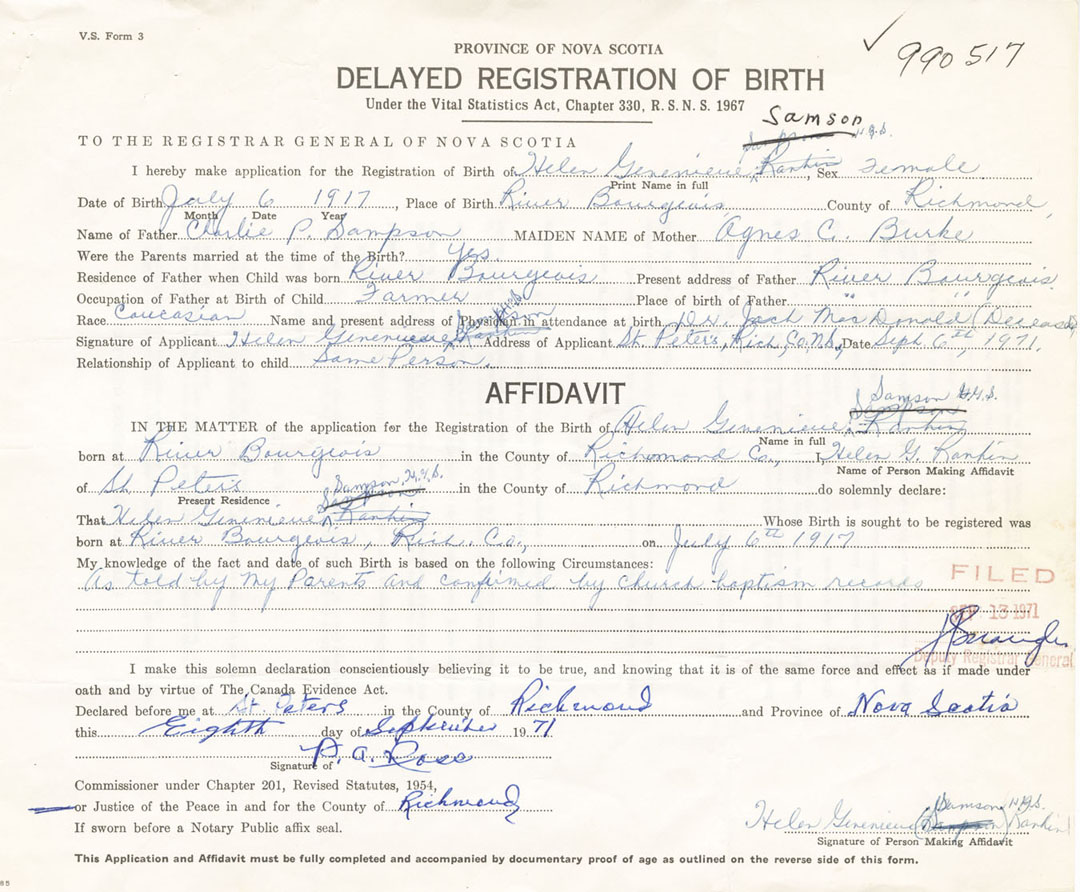 V.S. Form 3
990517
PROVINCE OF NOVA SCOTIA
DELAYED REGISTRATION OF BIRTH
Under the Vital Statistics Act, Chapter 330, R. S. N. S. 1967
Samson
TO THE REGISTRAR GENERAL OF NOVA SCOTIA H.G.S.
I hereby make application for the Registration of Birth of Helen Genenieve Rankin, Sex Female
Print Name in full
Date of Birth July 6 1917, Place of Birth River Bourgeois County of Richmond
Month Date Year
Name of Father Charlie P. Sampson MAIDEN NAME of Mother Agnes C. Burke
Were the Parents married at the time of the Birth? Yes.
Residence of Father when Child was born River Bourgeois Present address of Father River Bourgeois
Occupation of Father at Birth of Child Farmer Place of birth of Father " "
Race Caucasian Name and present address of Physician in attendance at birth Dr. Jack MacDonald (Deceased)
Signature of Applicant Helen Genenieve Address of Applicant St. Peter's, Rich, Co, N.S., Date Sept. 6th, 1971.
Relationship of Applicant to child Same Person.
AFFIDAVIT
Samson H.G.S.
Sampson
IN THE MATTER of the application for the Registration of the Birth of Helen Genenieve Rankin
Name in full
born at River Bourgeois in the County of Richmond Co., I, Helen G. Rankin
Name of Person Making Affidavit
of St. Peter's in the County of Richmond do solemnly declare:
Present Residence
Samson, H.G.S.
Sampson
That Helen Genenieve Rankin Whose Birth is sought to be registered was
born at River Bourgeois, Rich. Co., on July 6th 1917
My knowledge of the fact and date of such Birth is based on the following Circumstances:
As told by my Parents and confirmed by church baptism records
FILED
SEP 13 1971
Deputy Registrar General
I make this solemn declaration conscientiously believing it to be true, and knowing that it is of the same force and effect as if made under
oath and by virtue of The Canada Evidence Act.
Declared before me at St. Peters in the County of Richmond and Province of Nova Scotia
this Eighth day of September 1971
P. A. Ross
Signature of
Commissioner under Chapter 201, Revised Statutes, 1954,
or Justice of the Peace in and for the County of Richmond
If sworn before a Notary Public affix seal.
Samson H.G.S.
Helen Genenieve (Sampson) Rankin
Signature of Person Making Affidavit
This Application and Affidavit must be fully completed and accompanied by documentary proof of age as outlined on the reverse side of this form.
85